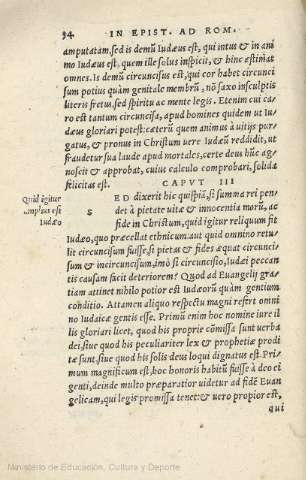 94 IN EPIST. AD ROM.
amputatam, sed is demū Iudæus est, qui intus & in ani
mo Iudæus est, quem ille solus inspicit, & hinc æstimat
omnes. Is demū circuncisus est, qui cor habet circunci
sum potius quàm genitale membrū, nō saxo insculptis
literis fretus, sed spiritu ac mente legis. Etenim cui ca/
ro est tantum circuncisa, apud homines quidem ut Iu/
dæus gloriari potest: cæterū quem animus à uitijs pur
gatus, & pronus in Christum uere Iudæū reddidit, ut
fraudetur sua laude apud mortales, certe deus hūc ag/
noscit & approbat, cuius calculo comprobari, solida
felicitas est.
CAPVT III
Quid igitur
amplius est
Iudæo
SED dixerit hic quispiā, si summa rei pen/
det à pietate uitæ & innocentia morū, ac
fide in Christum, quid igitur reliquum fit
Iudæo, quo præcellat ethnicum: aut quid omnino retu/
lit circuncisum fuisse, si pietas & fides æquat circunci
sum & incircuncisum, imò si circuncisio, Iudæi peccan
tis causam facit deteriorem? Quod ad Euangelij gra/
tiam attinet nihilo potior est Iudæorū quàm gentium
conditio. Attamen aliquo respectu magni refert omni
no Iudaicæ gentis esse. Primū enim hoc nomine iure il
lis gloriari licet, quod his proprie cōmissa sunt uerba
dei, siue quod his peculiariter lex & prophetiæ prodi
tæ sunt, siue quod his solis deus loqui dignatus est. Pri
mum magnificum est, hoc honoris habitū fuisse à deo ei
genti, deinde multo præparatior uidetur ad fidē Euan
gelicam, qui legis promissa tenet: & uero propior est,
qui
Ministerio de Educación, Cultura y Deporte